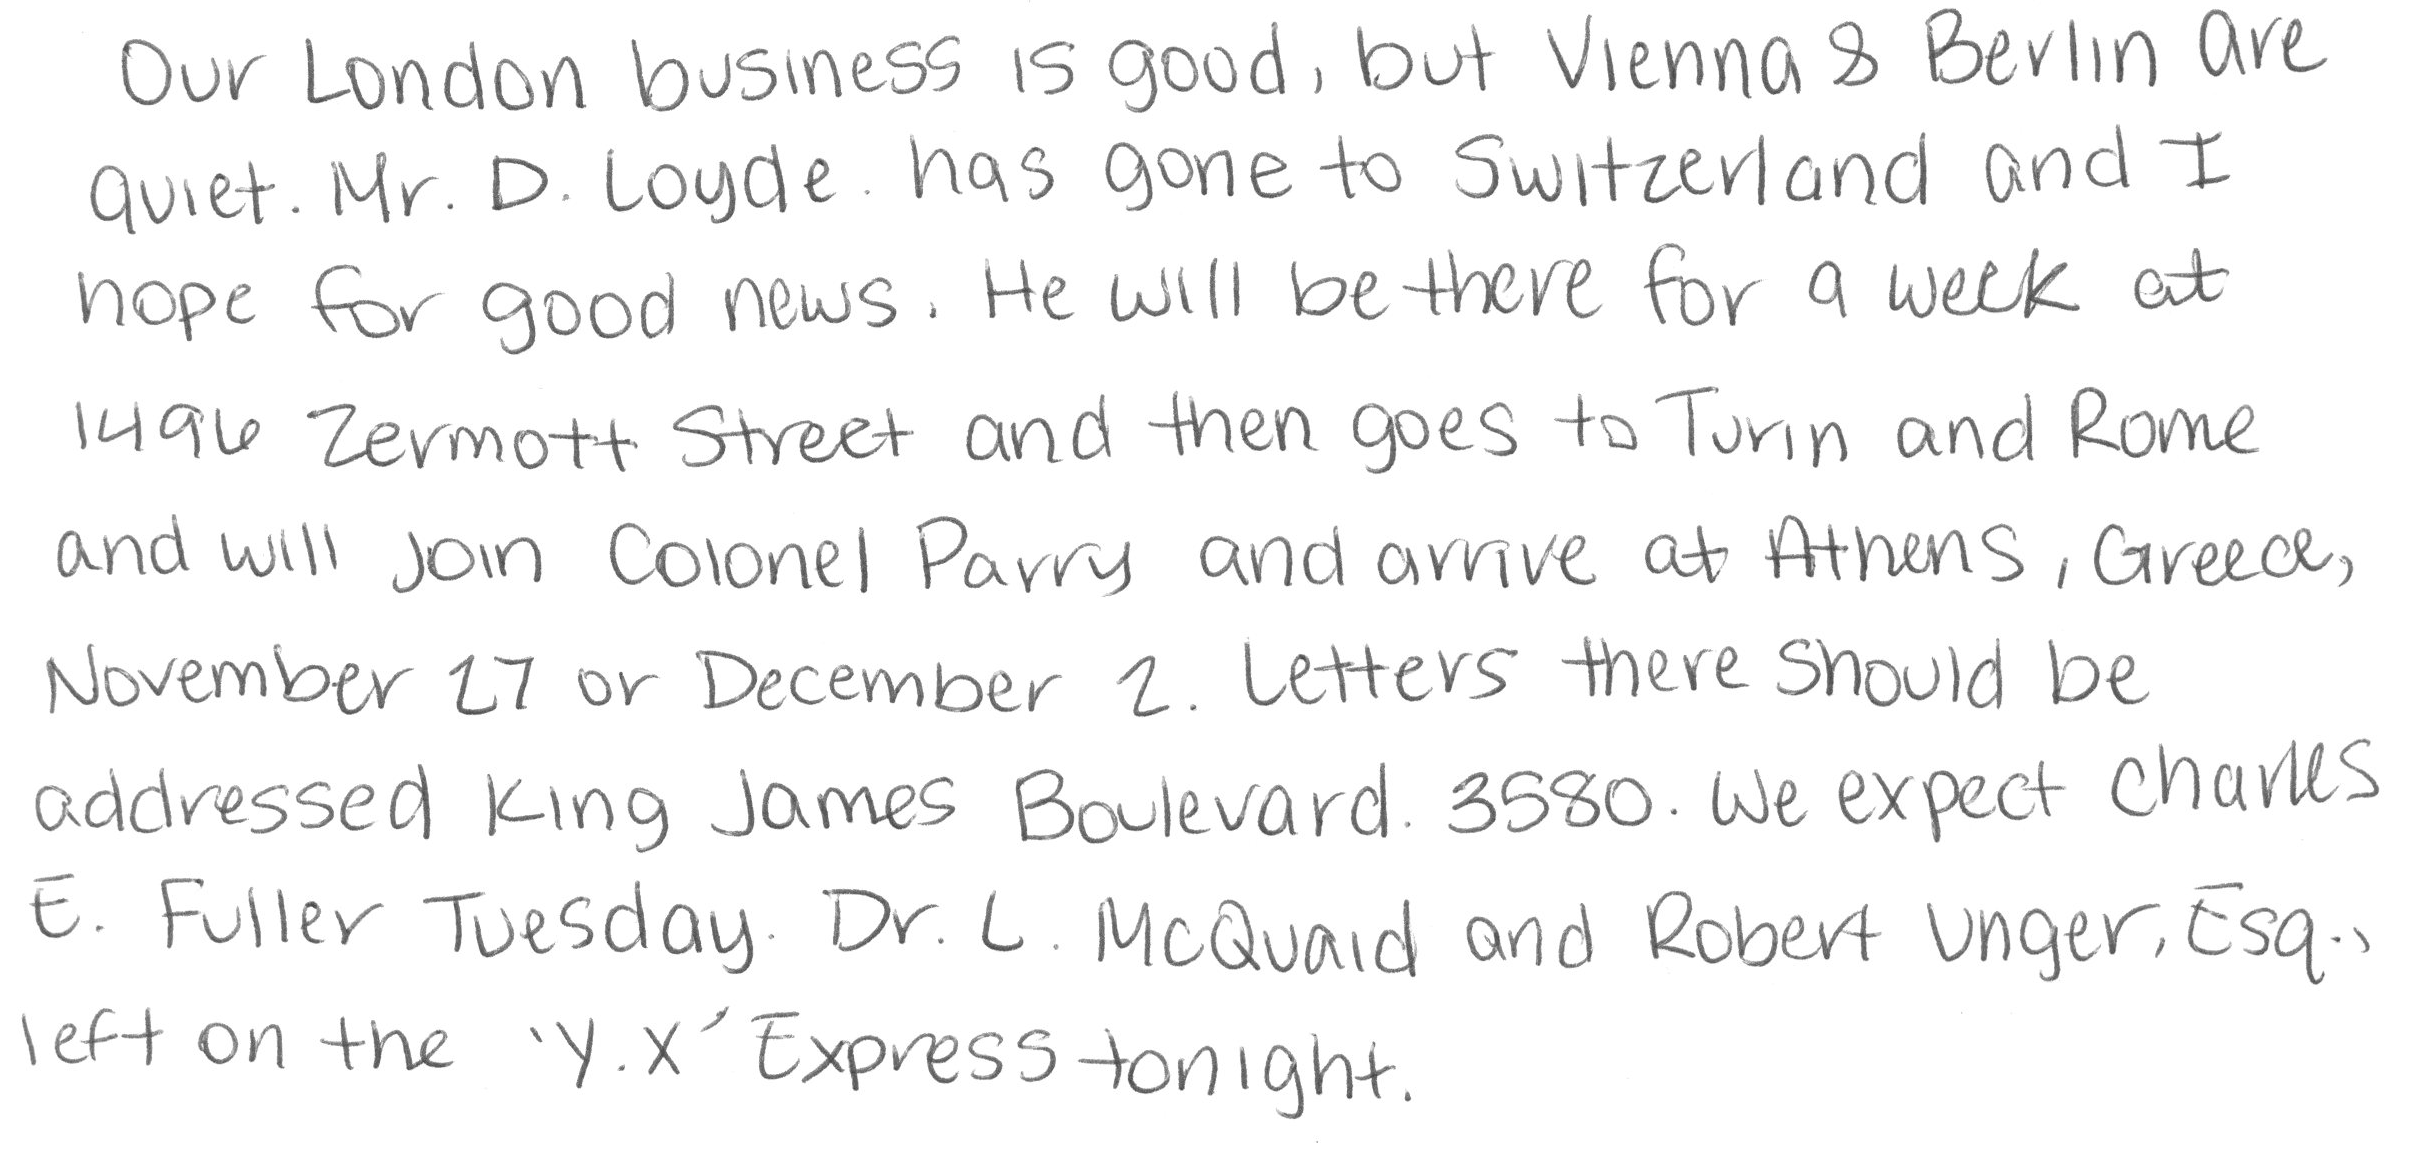 Our London business is good, but Vienna & Berlin are
quiet. Mr. D. Loyde. has gone to Switzerland and I
hope for good news. He will be there for a week at
1496 Zermott Street and then goes to Turin and Rome
and will join Colonel Parry and arrive at Athens, Greece,
November 27 or December 2. Letters there should be
addressed King James Boulevard. 3580. We expect Charles
E. Fuller Tuesday. Dr. L. McQuaid and Robert Unger, Esq.,
left on the 'Y.X' Express tonight.